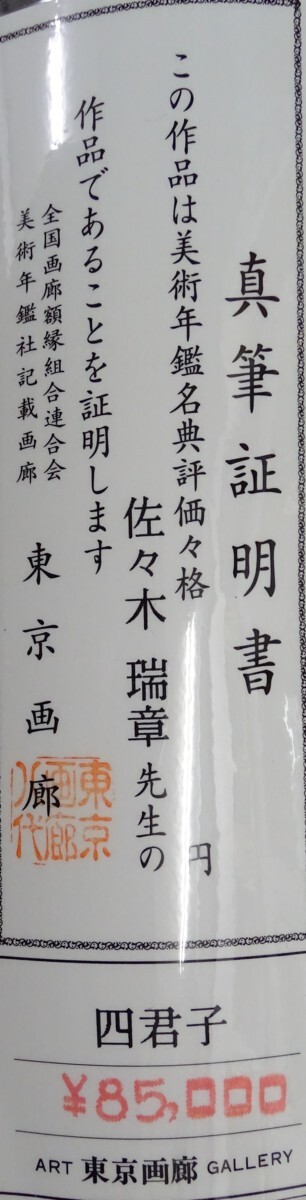 真筆証明書
この作品は美術年鑑名典評価々格 円
佐々木 瑞章先生の
作品であることを証明します
全国画廊額縁組合連合会
美術年鑑社記載画廊
東京画廊
東京画廊八代
四君子
¥85,000
ART 東京画廊 GALLERY